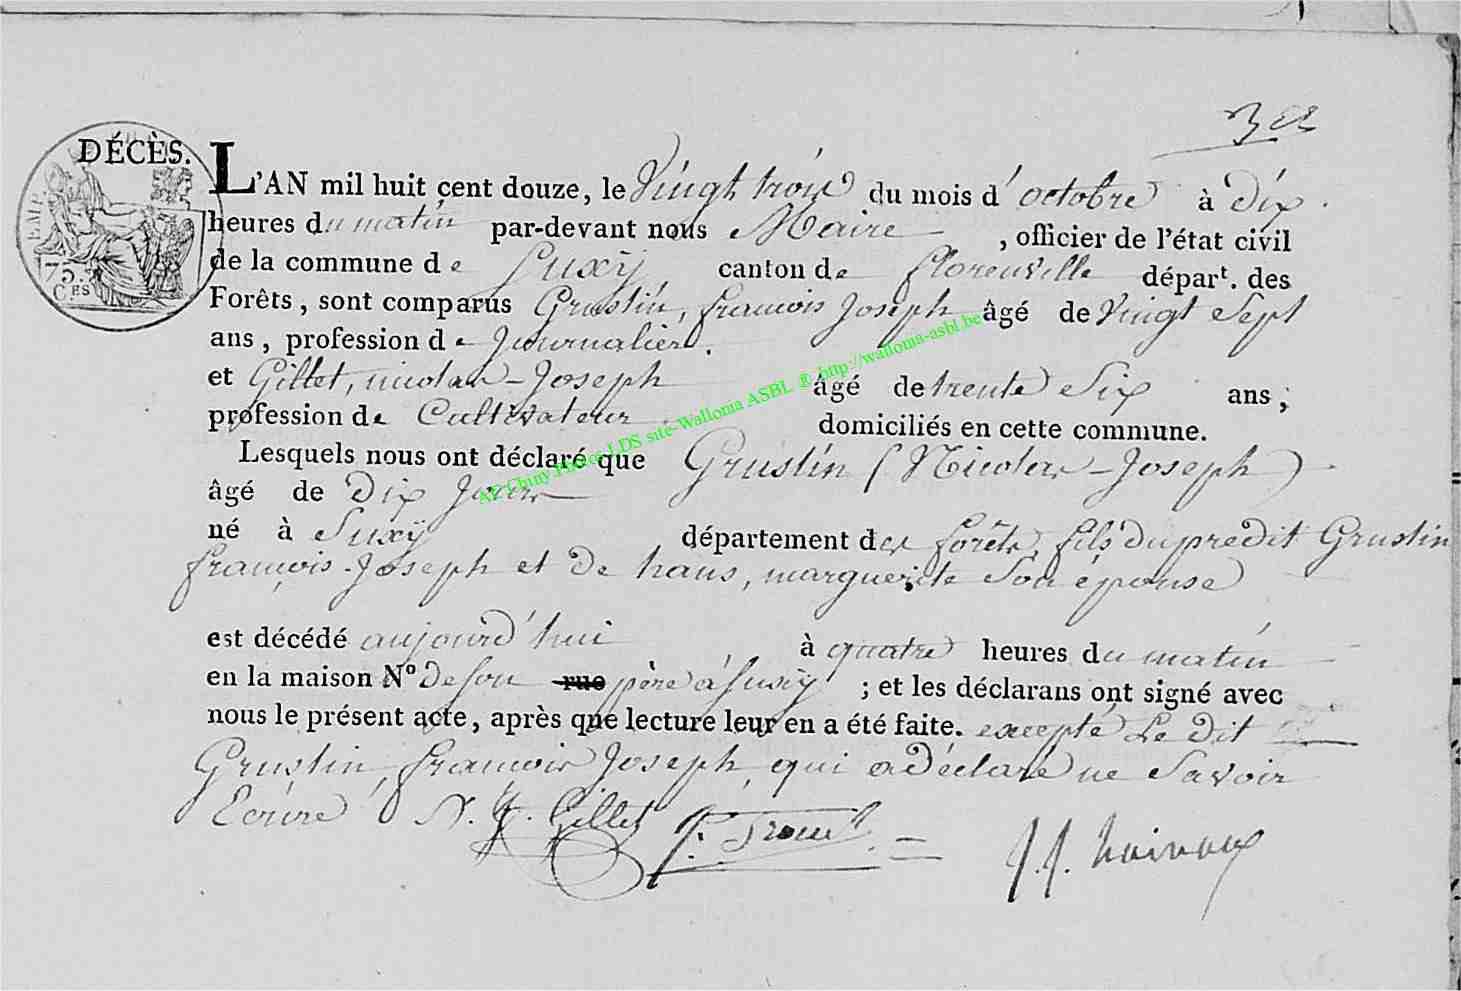 DÉCÈS.
L'AN mil huit cent douze, le Vingt trois du mois d'octobre à dix
heures du matin par-devant nous Maire, officier de l'état civil
de la commune de Suxÿ canton de florenville départ. des
Forêts, sont comparus Grustin, francois Joseph âgé de Vingt Sept
ans, profession de Journalier.
et Gillet, nicolas-Joseph âgé de trente Six ans;
profession de Cultivateur domiciliés en cette commune.
Lesquels nous ont déclaré que Grustin (Nicolas-Joseph)
âgé de Dix Jours
né à Suxÿ département des forêts, fils du predit Grustin
françois-Joseph et de haus, marguerite Son épouse
est décédé aujourd'hui à quatre heures du matin
en la maison Nº de son rue père à Suxÿ; et les déclarans ont signé avec
nous le présent acte, après que lecture leur en a été faite. excepté Le dit
Grustin, francois Joseph, qui a déclaré ne Savoir
Ecrire N. J. Gillet J. J.
EMP.
75.
C.ES
AE Chiny Photos LDS site-Wallonia ASBL ® http://wallonia-asbl.be